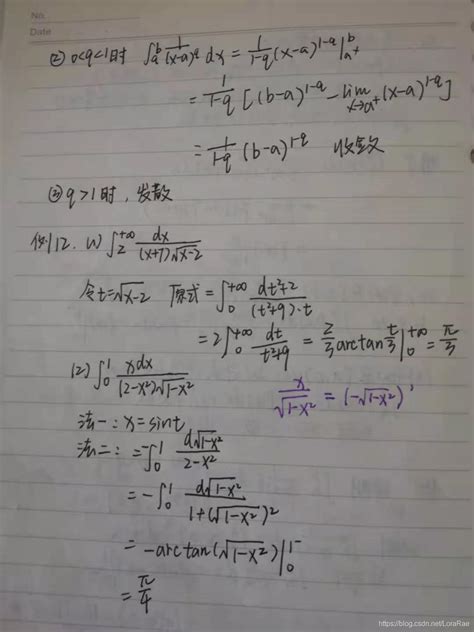 No.
Date
(2) 0<q<1时 ∫_a^b 1/(x-a)^q dx = 1/(1-q) (x-a)^{1-q} |_{a^+}^b
= 1/(1-q) [(b-a)^{1-q} - lim_{x→a^+} (x-a)^{1-q}]
= 1/(1-q) (b-a)^{1-q} 收敛
(3) q>1时,发散
例12. (1) ∫_2^{+∞} dx/((x+7)√(x-2))
令t=√(x-2) 原式= ∫_0^{+∞} dt²+2/((t²+9)·t)
= 2∫_0^{+∞} dt/(t²+9) = 2/3 arctan t/3 |_0^{+∞} = π/3
(2) ∫_0^1 xdx/((2-x²)√(1-x²))
x/√(1-x²) = (-√(1-x²))'
法一: x=sint
法二: =-∫_0^1 d√(1-x²)/(2-x²)
= -∫_0^1 d√(1-x²)/(1+(√(1-x²))²)
= -arctan(√(1-x²)) |_0^{1^-}
= π/4
https://blog.csdn.net/LoraRae